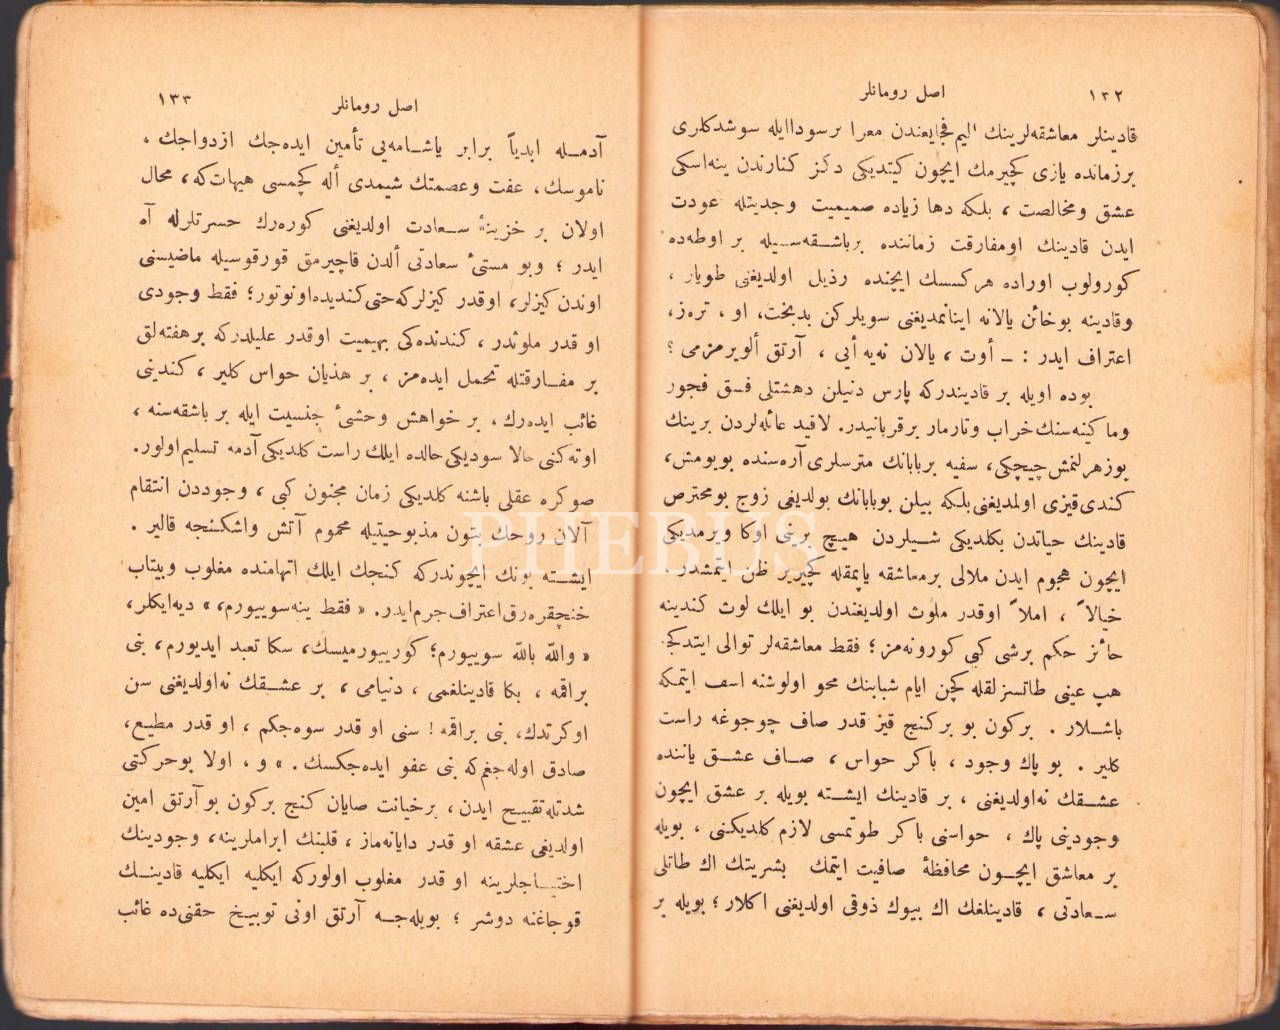 ١٣٢
اصل رومانلر
قادینلر معاشقه‌لرینك الیم فجایعندن معرا برسوداایله سوشدكلری
برزمانده یازی كچیرمك ایچون كیتدیكی دكز كنارندن ینه‌اسكی
عشق ومخالصت ، بلكه دها زیاده صمیمیت وجدیتله عودت
ایدن قادینك اومفارقت زماننده برباشقه‌سیله بر اوطه‌ده
كورولوب اوراده هركسك ایچنده رذیل اولدیغنی طویار ،
وقادینه بوخائن یالانه اینانمدیغنی سویلركن بدبخت، او ، تره‌ز،
اعتراف ایدر : ــ أوت ، یالان نه‌یه أیی ، آرتق ألویرمزمی ؟
بوده اویله بر قادیندركه پارس دنیلن دهشتلی فسق فجور
وما كینه‌سنك خراب وتارمار برقربانیدر. لاقید عائله‌لردن برینك
بوزهرلنمش چیچكی، سفیه بربابانك مترسلری آره‌سنده بویومش،
كندی قیزی اولمدیغنی بلكه بیلن بوبابانك بولدیغی زوج بومحترص
قادینك حیاتدن بكلدیكی شیلردن هیچ برینی اوكا ویرمدیكی
ایچون هجوم ایدن ملالی برمعاشقه یاپمقله كچیریر ظن ایتمشدر.
خیالاً ، املاً اوقدر ملوث اولدیغندن بو ایلك لوث كندینه
حائز حكم برشی كبی كورونه‌مز ؛ فقط معاشقه‌لر توالی ایتدكجه
هپ عینی طاتسزلقله كچن ایام شبابنك محو اولوشنه اسف ایتمكه
باشلار . بركون بو بركنج قیز قدر صاف چوجوغه راست
كلیر . بو پاك وجود ، باكر حواس ، صاف عشق یاننده
عشقك نه‌اولدیغنی ، بر قادینك ایشته بویله بر عشق ایچون
وجودینی پاك ، حواسنی باكر طوتمسی لازم كلدیكنی ، بویله
بر معاشق ایچون محافظهٔ صافیت ایتمك بشریتك اك طاتلی
سعادتی ، قادینلغك اك بیوك ذوقی اولدیغنی اكلار ؛ بویله بر
اصل رومانلر
١٣٣
آدمله ابدیاً برابر یاشامه‌یی تأمین ایده‌جك ازدواجك ،
ناموسك، عفت وعصمتك شیمدی أله كچمسی هیهات‌كه ، محال
اولان بر خزینهٔ سعادت اولدیغنی كوره‌رك حسرتلرله آه
ایدر ؛ وبو مستیٔ سعادتی ألدن قاچیرمق قورقوسیله ماضیسنی
اوندن كیزلر، اوقدر كیزلركه حتی كندیده اونوتور؛ فقط وجودی
او قدر ملوثدر ، كندنده‌كی بهیمیت اوقدر علیلدركه برهفته‌لق
بر مفارقتله تحمل ایده‌مز ، بر هذیان حواس كلیر ، كندینی
غائب ایده‌رك ، بر خواهش وحشیٔ جنسیت ایله بر باشقه‌سنه ،
اوته‌كنی حالا سودیكی حالده ایلك راست كلدیكی آدمه تسلیم اولور.
صوكره عقلی باشنه كلدیكی زمان مجنون كبی ، وجوددن انتقام
آلان روحك بتون مذبوحیتیله محموم آتش واشكنجه قالیر .
ایشته بونك ایچوندركه كنجك ایلك اتهامنده مغلوب وبیتاب
خنچقره‌رق اعتراف جرم ایدر. « فقط ینه سوییورم، » دیه ایكلر،
« والله بالله سوییورم؛ كورییورمیسك، سكا تعبد ایدیورم، بنی
براقمه ، بكا قادینلغمی ، دنیامی ، بر عشقك نه‌اولدیغنی سن
اوكرتدك، بنی براقمه ! سنی او قدر سوه‌جكم ، او قدر مطیع،
صادق اوله‌جغم كه بنی عفو ایده‌جكسك . » و ، اولا بوحركتی
شدتله تقبیح ایدن ، برخیانت صایان كنج بركون بو آرتق امین
اولدیغی عشقه او قدر دایانه‌ماز ، قلبنك ابراملرینه ، وجودینك
احتیاجلرینه او قدر مغلوب اولوركه ایكلیه ایكلیه قادینك
قوجاغنه دوشر ؛ بویله‌جه آرتق اونی توبیخ حقنی‌ده غائب
PHEBUS